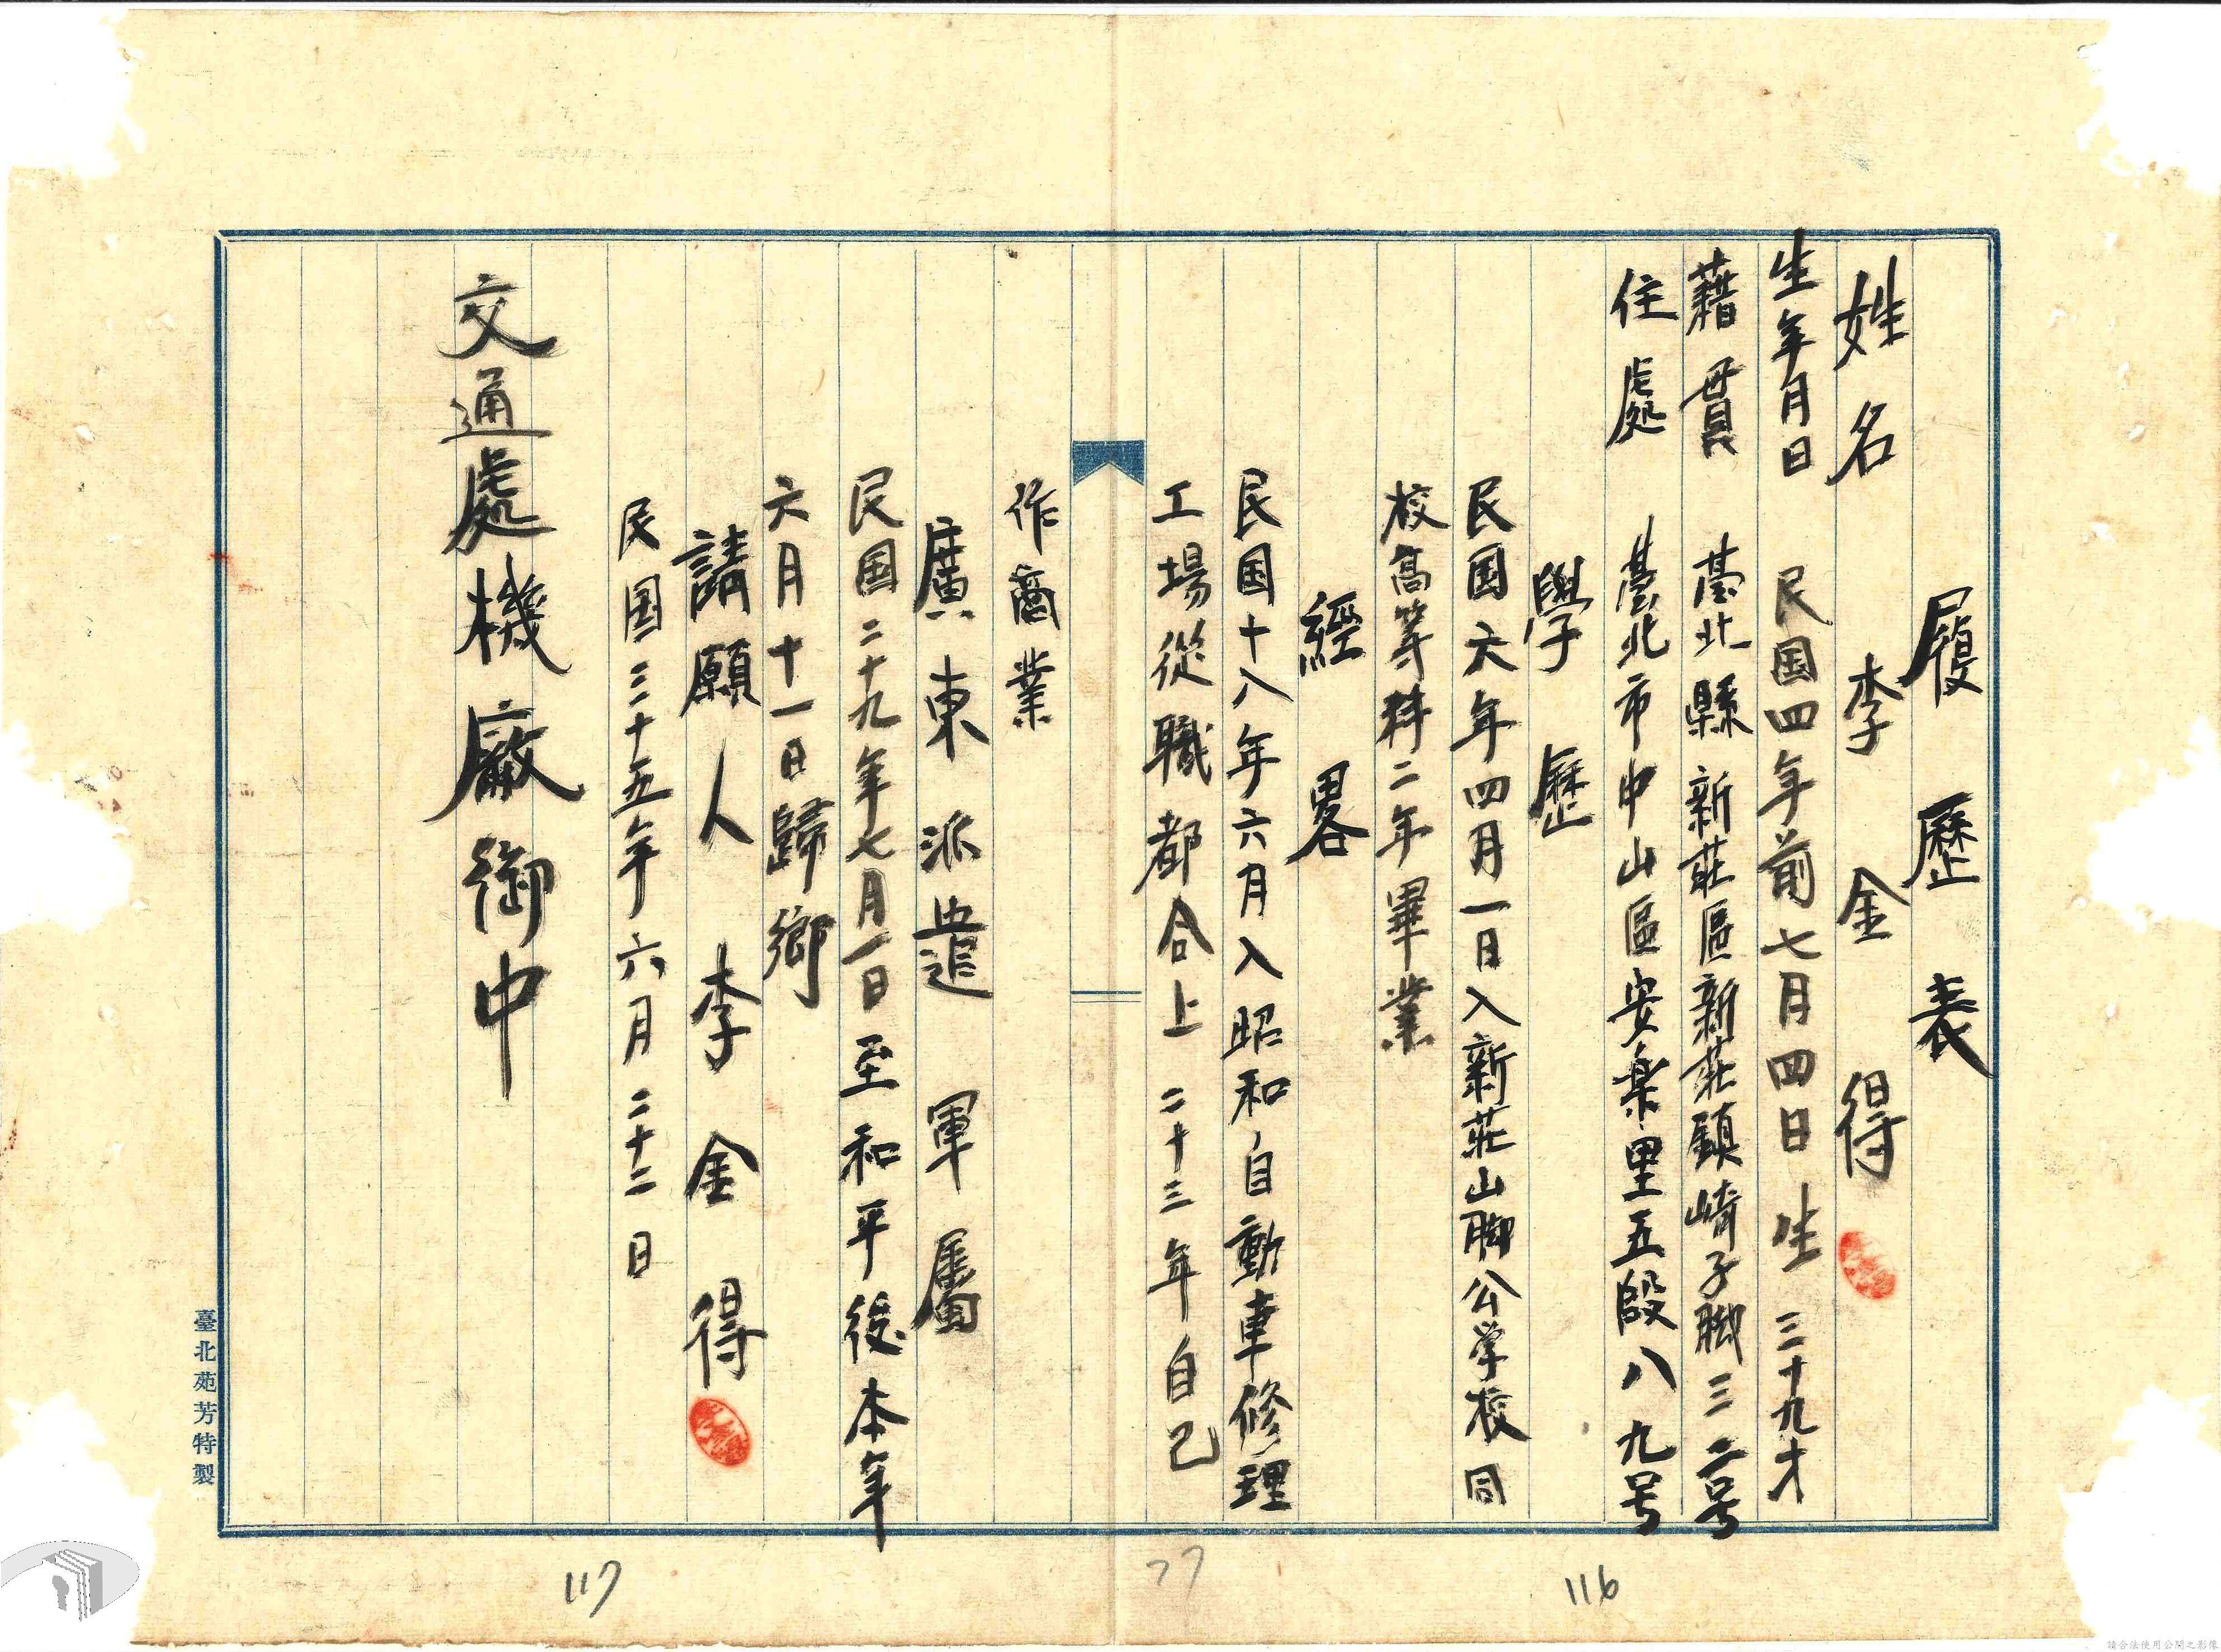 履歷表
姓名 李金得
生年月日 民国四年前七月四日生 三十九才
藉貫 臺北縣新莊區新莊鎮崎子脚三二号
住處 臺北市中山區安樂里五段八九号
學歷
民国六年四月一日入新莊山脚公学校同
校高等科二年畢業
經畧
民国十八年六月入昭和自動車修理
工場從職都合上 二十三年自己
作商業
廣東派遣軍屬
民国二十九年七月一日至和平後本年
六月十一日歸鄉
請願人 李金得
民国三十五年六月二十二日
交通處機廠御中
臺北苑芳特製
117
77
116
請合法使用公開之影像